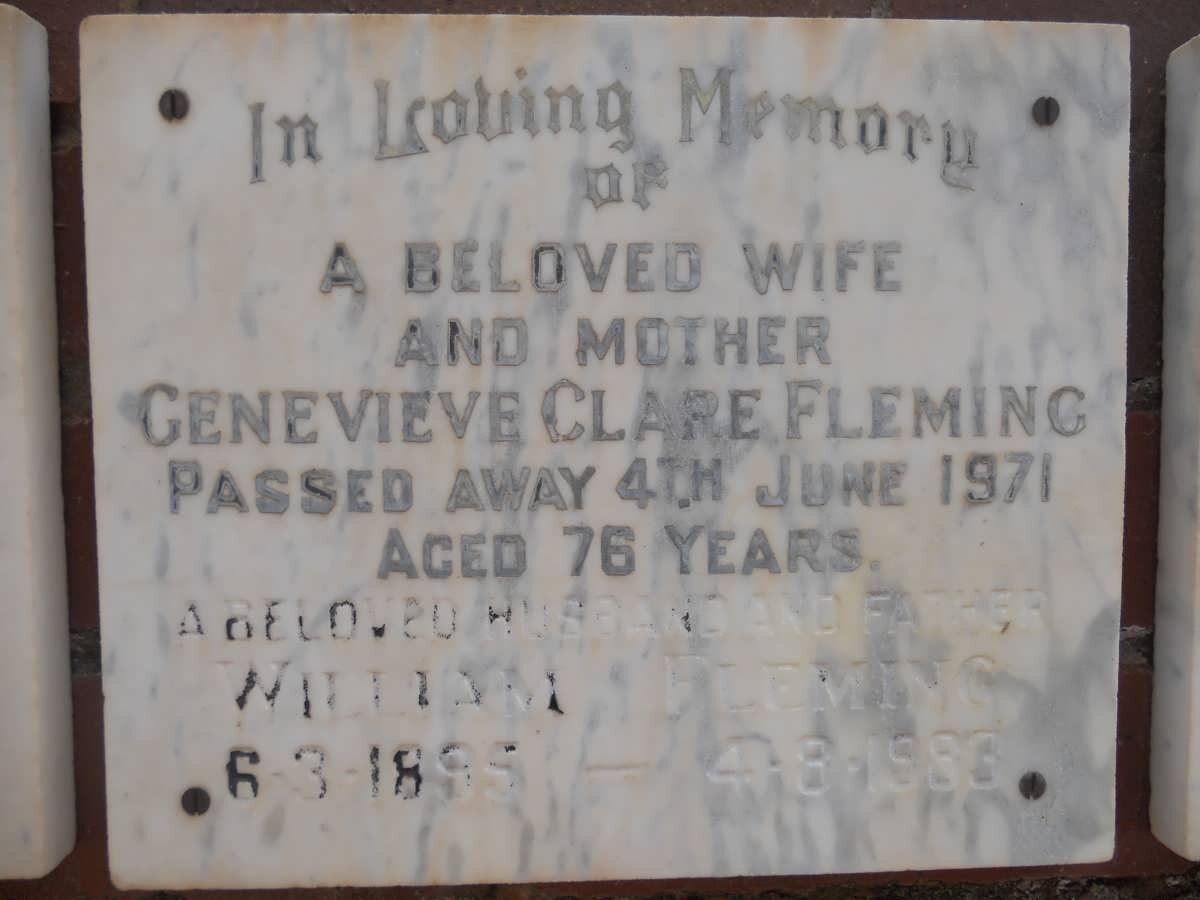 In Loving Memory
of
A BELOVED WIFE
AND MOTHER
GENEVIEVE CLARE FLEMING
PASSED AWAY 4TH JUNE 1971
AGED 76 YEARS.
A BELOVED HUSBAND AND FATHER
WILLIAM FLEMING
6-3-1895 — 4-8-1983